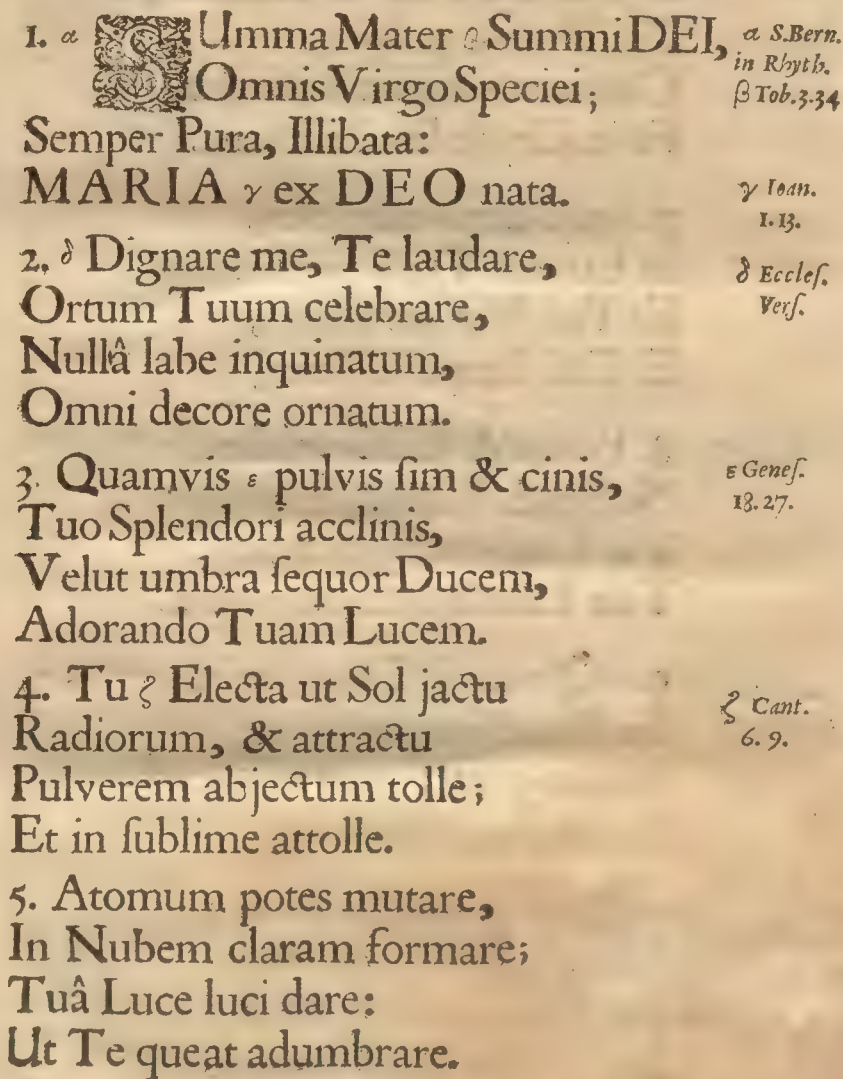 1. α SUmma Mater β Summi DEI,
Omnis Virgo Speciei;
Semper Pura, Illibata:
MARIA γ ex DEO nata.
2. δ Dignare me, Te laudare,
Ortum Tuum celebrare,
Nullâ labe inquinatum,
Omni decore ornatum.
3. Quamvis ε pulvis ſim & cinis,
Tuo Splendori acclinis,
Velut umbra ſequor Ducem,
Adorando Tuam Lucem.
4. Tu ζ Electa ut Sol jactu
Radiorum, & attractu
Pulverem abjectum tolle;
Et in ſublime attolle.
5. Atomum potes mutare,
In Nubem claram formare;
Tuâ Luce luci dare:
Ut Te queat adumbrare.
α S.Bern.
in Rhyth.
β Tob.3.34
γ Ioan.
1.13.
δ Eccleſ.
Verſ.
ε Geneſ.
18.27.
ζ Cant.
6.9.